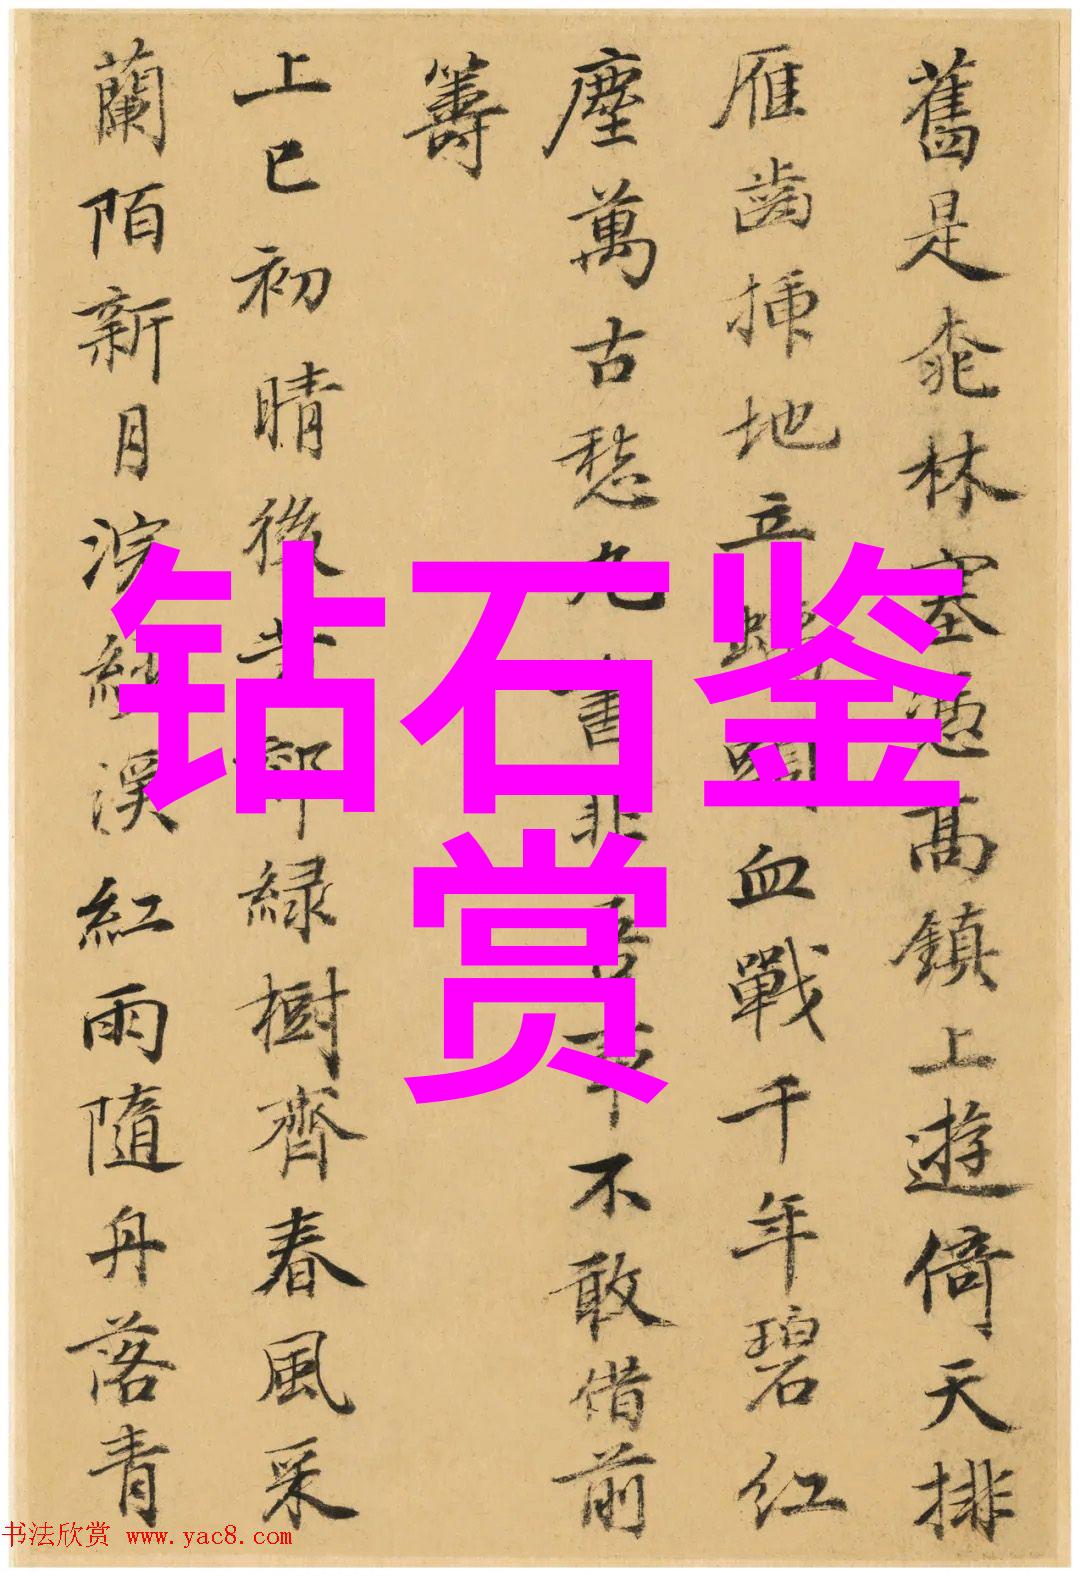 舊是桃林塞憑高鎮上遊倚天排
雁齒插地立螭頭血戰千年碧紅
塵萬古愁九書非吾事不敢借前
籌
上巳初晴後芳郊綠樹齊春風采
蘭陌新月浣紗溪紅雨隨舟落青
钻石鉴
赏
书法欣赏 www.yac8.com